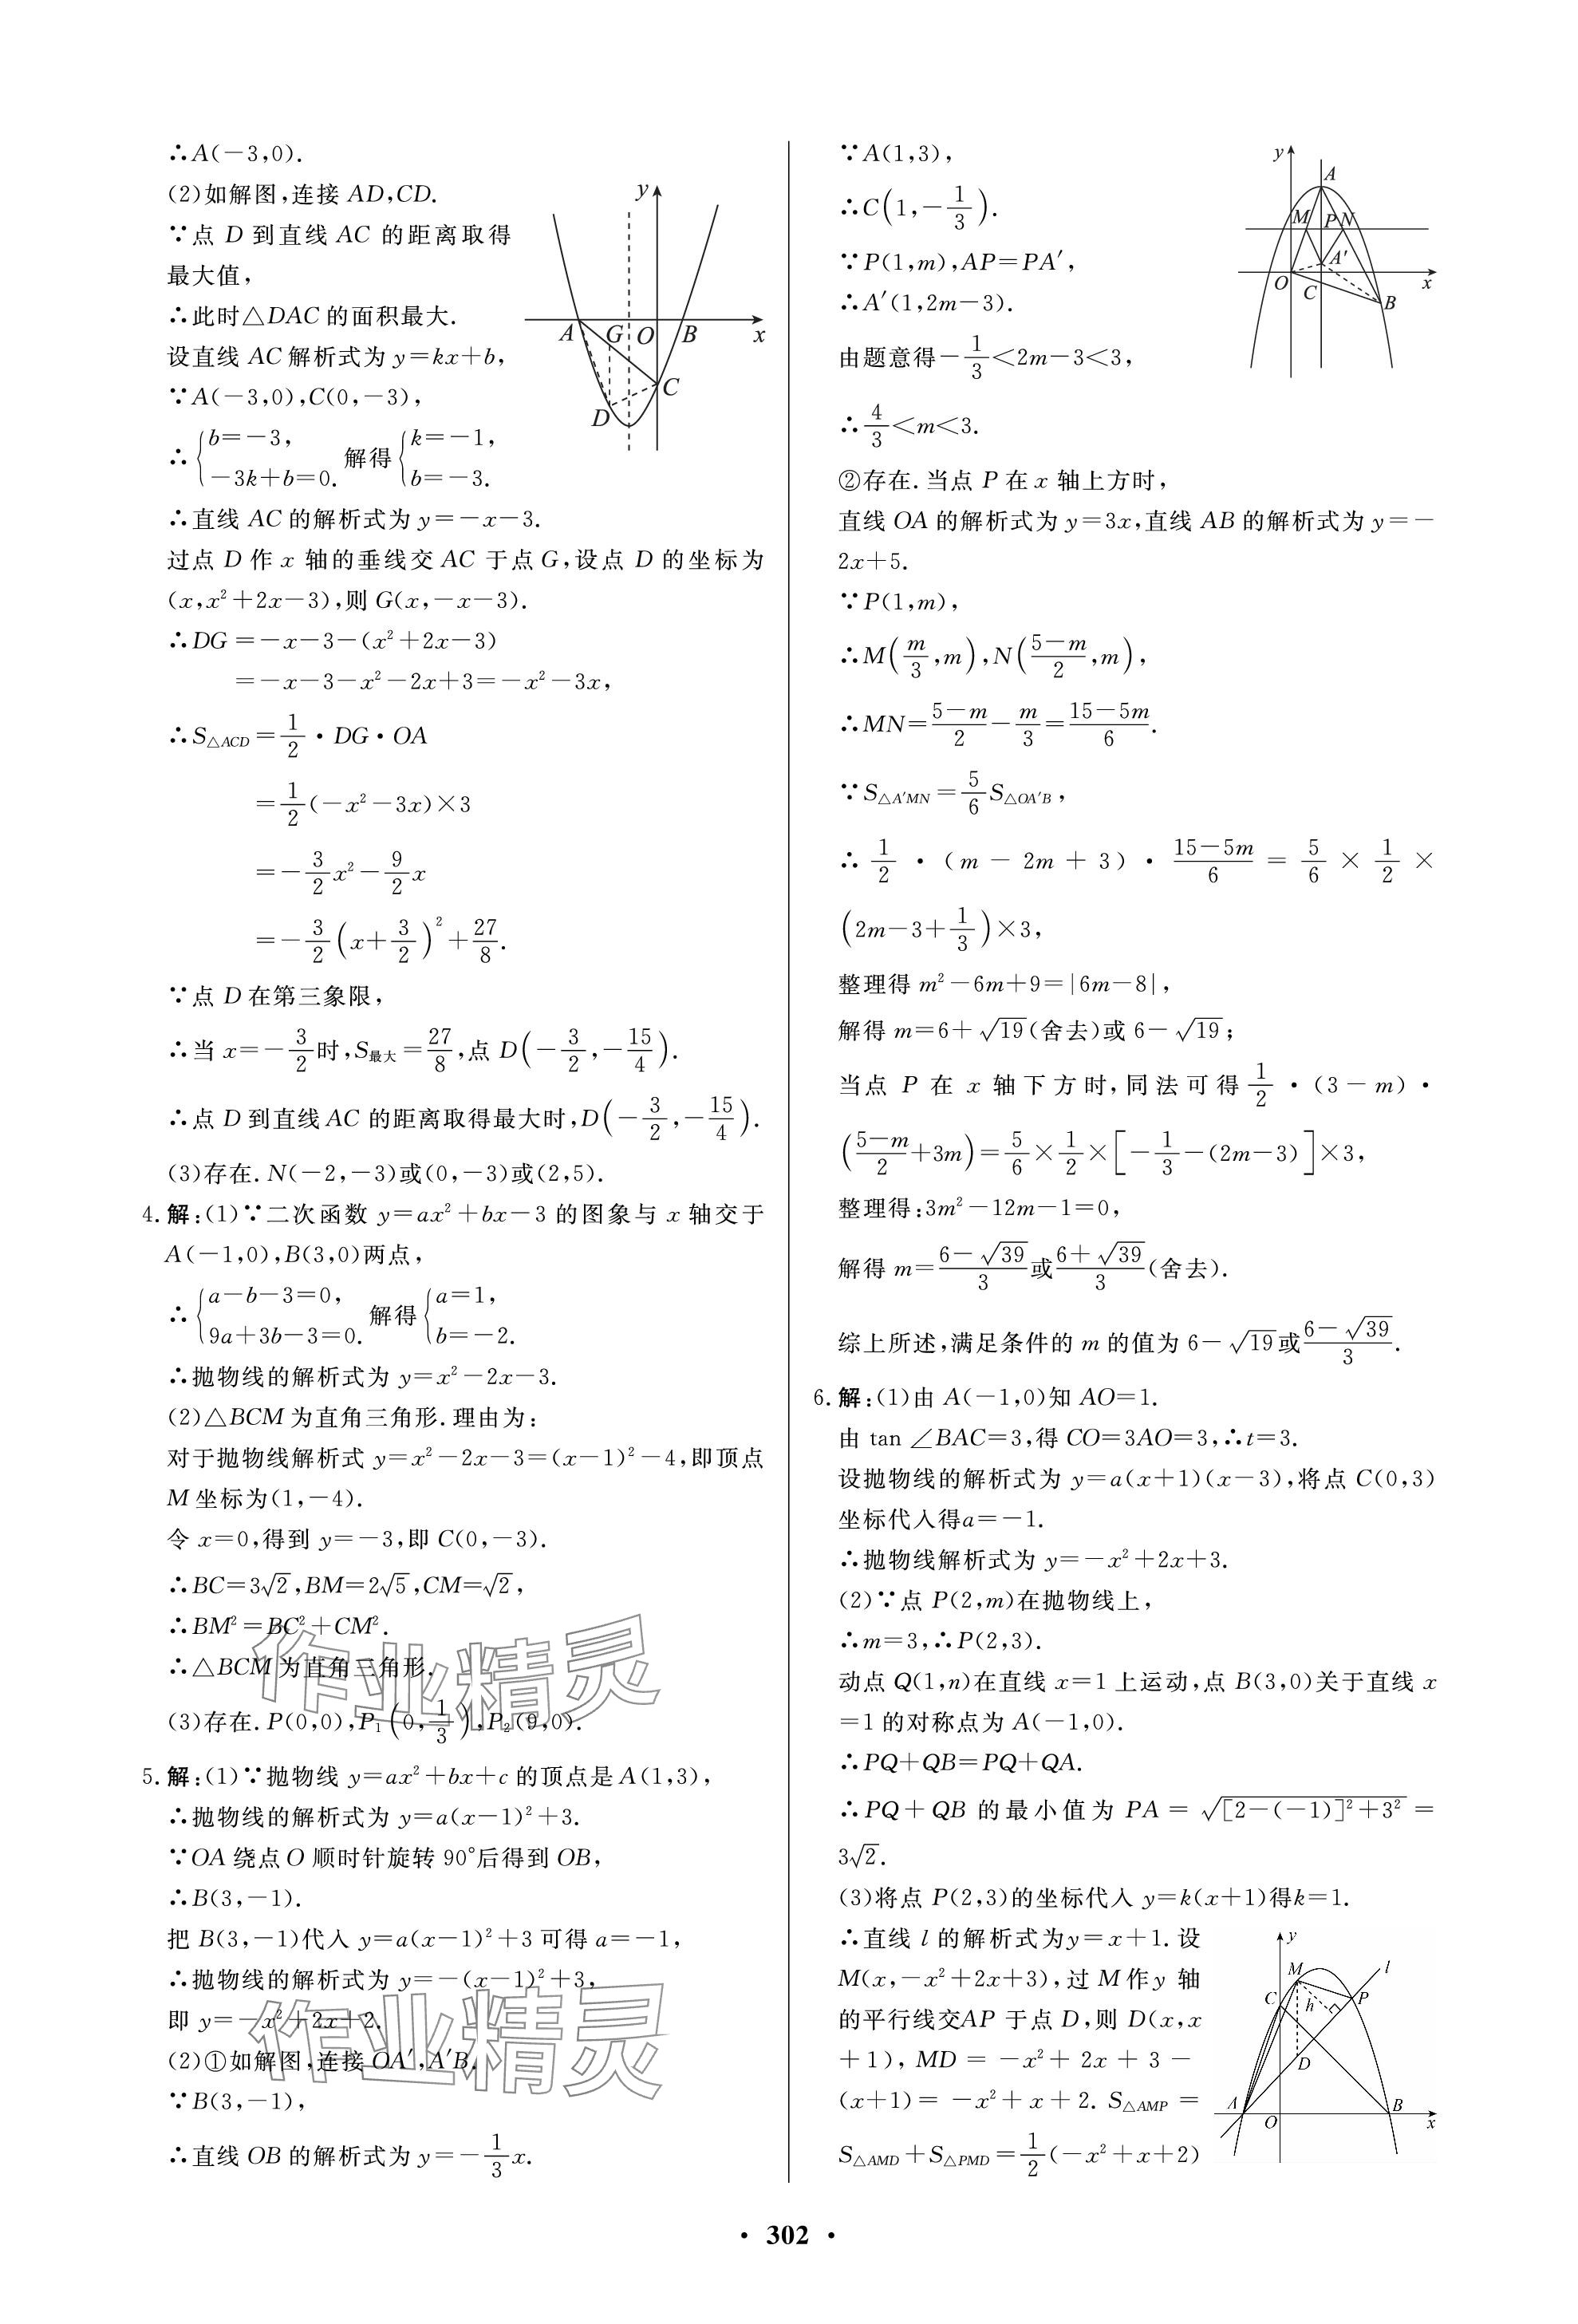 ∴A(－3,0).
(2)如解图,连接 AD,CD.
∵点 D 到直线 AC 的距离取得
最大值,
∴此时△DAC 的面积最大.
设直线 AC 解析式为 y=kx+b,
∵A(－3,0),C(0,－3),
∴{b=－3, －3k+b=0. 解得{k=－1, b=－3.
∴直线 AC 的解析式为 y=－x－3.
过点 D 作 x 轴的垂线交 AC 于点 G,设点 D 的坐标为
(x,x²+2x－3),则 G(x,－x－3).
∴DG=－x－3－(x²+2x－3)
=－x－3－x²－2x+3=－x²－3x,
∴S△ACD=1/2·DG·OA
=1/2(－x²－3x)×3
=－3/2x²－9/2x
=－3/2(x+3/2)²+27/8.
∵点 D 在第三象限,
∴当 x=－3/2时,S最大=27/8,点 D(－3/2,－15/4).
∴点 D 到直线 AC 的距离取得最大时,D(－3/2,－15/4).
(3)存在. N(－2,－3)或(0,－3)或(2,5).
4. 解:(1)∵二次函数 y=ax²+bx－3 的图象与 x 轴交于
A(－1,0),B(3,0)两点,
∴{a－b－3=0, 9a+3b－3=0. 解得{a=1, b=－2.
∴抛物线的解析式为 y=x²－2x－3.
(2)△BCM 为直角三角形. 理由为:
对于抛物线解析式 y=x²－2x－3=(x－1)²－4,即顶点
M 坐标为(1,－4).
令 x=0,得到 y=－3,即 C(0,－3).
∴BC=3√2,BM=2√5,CM=√2,
∴BM²=BC²+CM².
∴△BCM 为直角三角形.
(3)存在. P(0,0),P₁(0,1/3),P₂(9,0).
5. 解:(1)∵抛物线 y=ax²+bx+c 的顶点是 A(1,3),
∴抛物线的解析式为 y=a(x－1)²+3.
∵OA 绕点 O 顺时针旋转 90°后得到 OB,
∴B(3,－1).
把 B(3,－1)代入 y=a(x－1)²+3 可得 a=－1,
∴抛物线的解析式为 y=－(x－1)²+3,
即 y=－x²+2x+2.
(2)①如解图,连接 OA′,A′B.
∵B(3,－1),
∴直线 OB 的解析式为 y=－1/3x.
y
A G O B x
C
D
作业精灵
作业精灵
∵A(1,3),
∴C(1,－1/3).
∵P(1,m),AP=PA′,
∴A′(1,2m－3).
由题意得－1/3<2m－3<3,
∴4/3<m<3.
②存在. 当点 P 在 x 轴上方时,
直线 OA 的解析式为 y=3x,直线 AB 的解析式为 y=－
2x+5.
∵P(1,m),
∴M(m/3,m),N((5－m)/2,m),
∴MN=(5－m)/2－m/3=(15－5m)/6.
∵S△A′MN=5/6S△OA′B,
∴1/2·(m－2m+3)·(15－5m)/6=5/6×1/2×
(2m－3+1/3)×3,
整理得 m²－6m+9=|6m－8|,
解得 m=6+√19(舍去)或 6－√19;
当点 P 在 x 轴下方时,同法可得1/2·(3－m)·
((5－m)/2+3m)=5/6×1/2×[－1/3－(2m－3)]×3,
整理得:3m²－12m－1=0,
解得 m=(6－√39)/3或(6+√39)/3(舍去).
综上所述,满足条件的 m 的值为 6－√19或(6－√39)/3.
6. 解:(1)由 A(－1,0)知 AO=1.
由 tan ∠BAC=3,得 CO=3AO=3,∴t=3.
设抛物线的解析式为 y=a(x+1)(x－3),将点 C(0,3)
坐标代入得a=－1.
∴抛物线解析式为 y=－x²+2x+3.
(2)∵点 P(2,m)在抛物线上,
∴m=3,∴P(2,3).
动点 Q(1,n)在直线 x=1 上运动,点 B(3,0)关于直线 x
=1 的对称点为 A(－1,0).
∴PQ+QB=PQ+QA.
∴PQ+QB 的最小值为 PA=√([2－(－1)]²+3²)=
3√2.
(3)将点 P(2,3)的坐标代入 y=k(x+1)得k=1.
∴直线 l 的解析式为y=x+1. 设
M(x,－x²+2x+3),过 M 作 y 轴
的平行线交AP 于点 D,则 D(x,x
+1), MD=－x²+2x+3－
(x+1)=－x²+x+2. S△AMP=
S△AMD+S△PMD=1/2(－x²+x+2)
y
A
M P N
A′
O C x
B
y
M l
C h P
D
A B
O x
· 302 ·